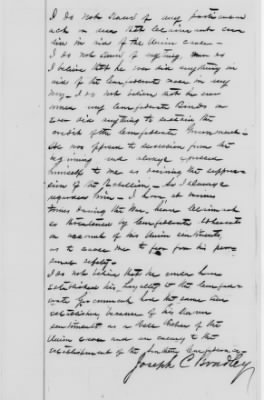 I do not know of any particular
act or use that Claimant ever
did in aid of the Union cause -
I do not know of anything nor do
I believe that he ever did anything in
aid of the Confederate cause in any
way - I do not believe that he ever
any Confederate Bonds or
ever did anything to sustain the
credit of the Confederate Government -
He was opposed to secession from the
beginning and always expressed
himself to me as desiring the suppres-
sion of the Rebellion - As I always
regarded him - I have at various
times during the War, heard Claimant
so threatened by Confederate soldiers
on account of his Union sentiments,
as to cause me to fear for his per-
sonal safety -
I do not believe that he could have
established his loyalty to the Confede-
rate Government had the same been
established, because of his known
sentiments as a well wisher of the
Union cause and an enemy to the
establishment of the Southern Confederacy
Joseph C Bradley